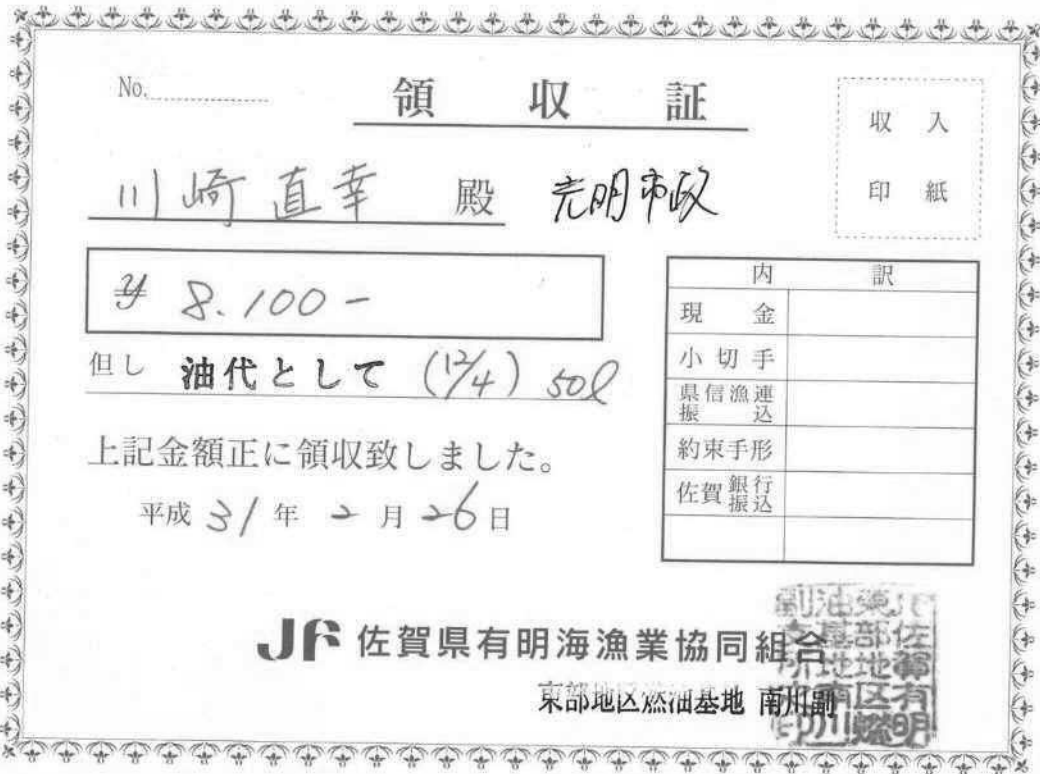 No.
領収証
収入
印紙
川崎直幸 殿 光明市政
¥ 8.100-
但し 油代として (12/4) 50ℓ
上記金額正に領収致しました。
平成31年2月26日
内訳
現金
小切手
県信漁連振込
約束手形
佐賀銀行振込
JF 佐賀県有明海漁業協同組合
東部地区燃油基地 南川副